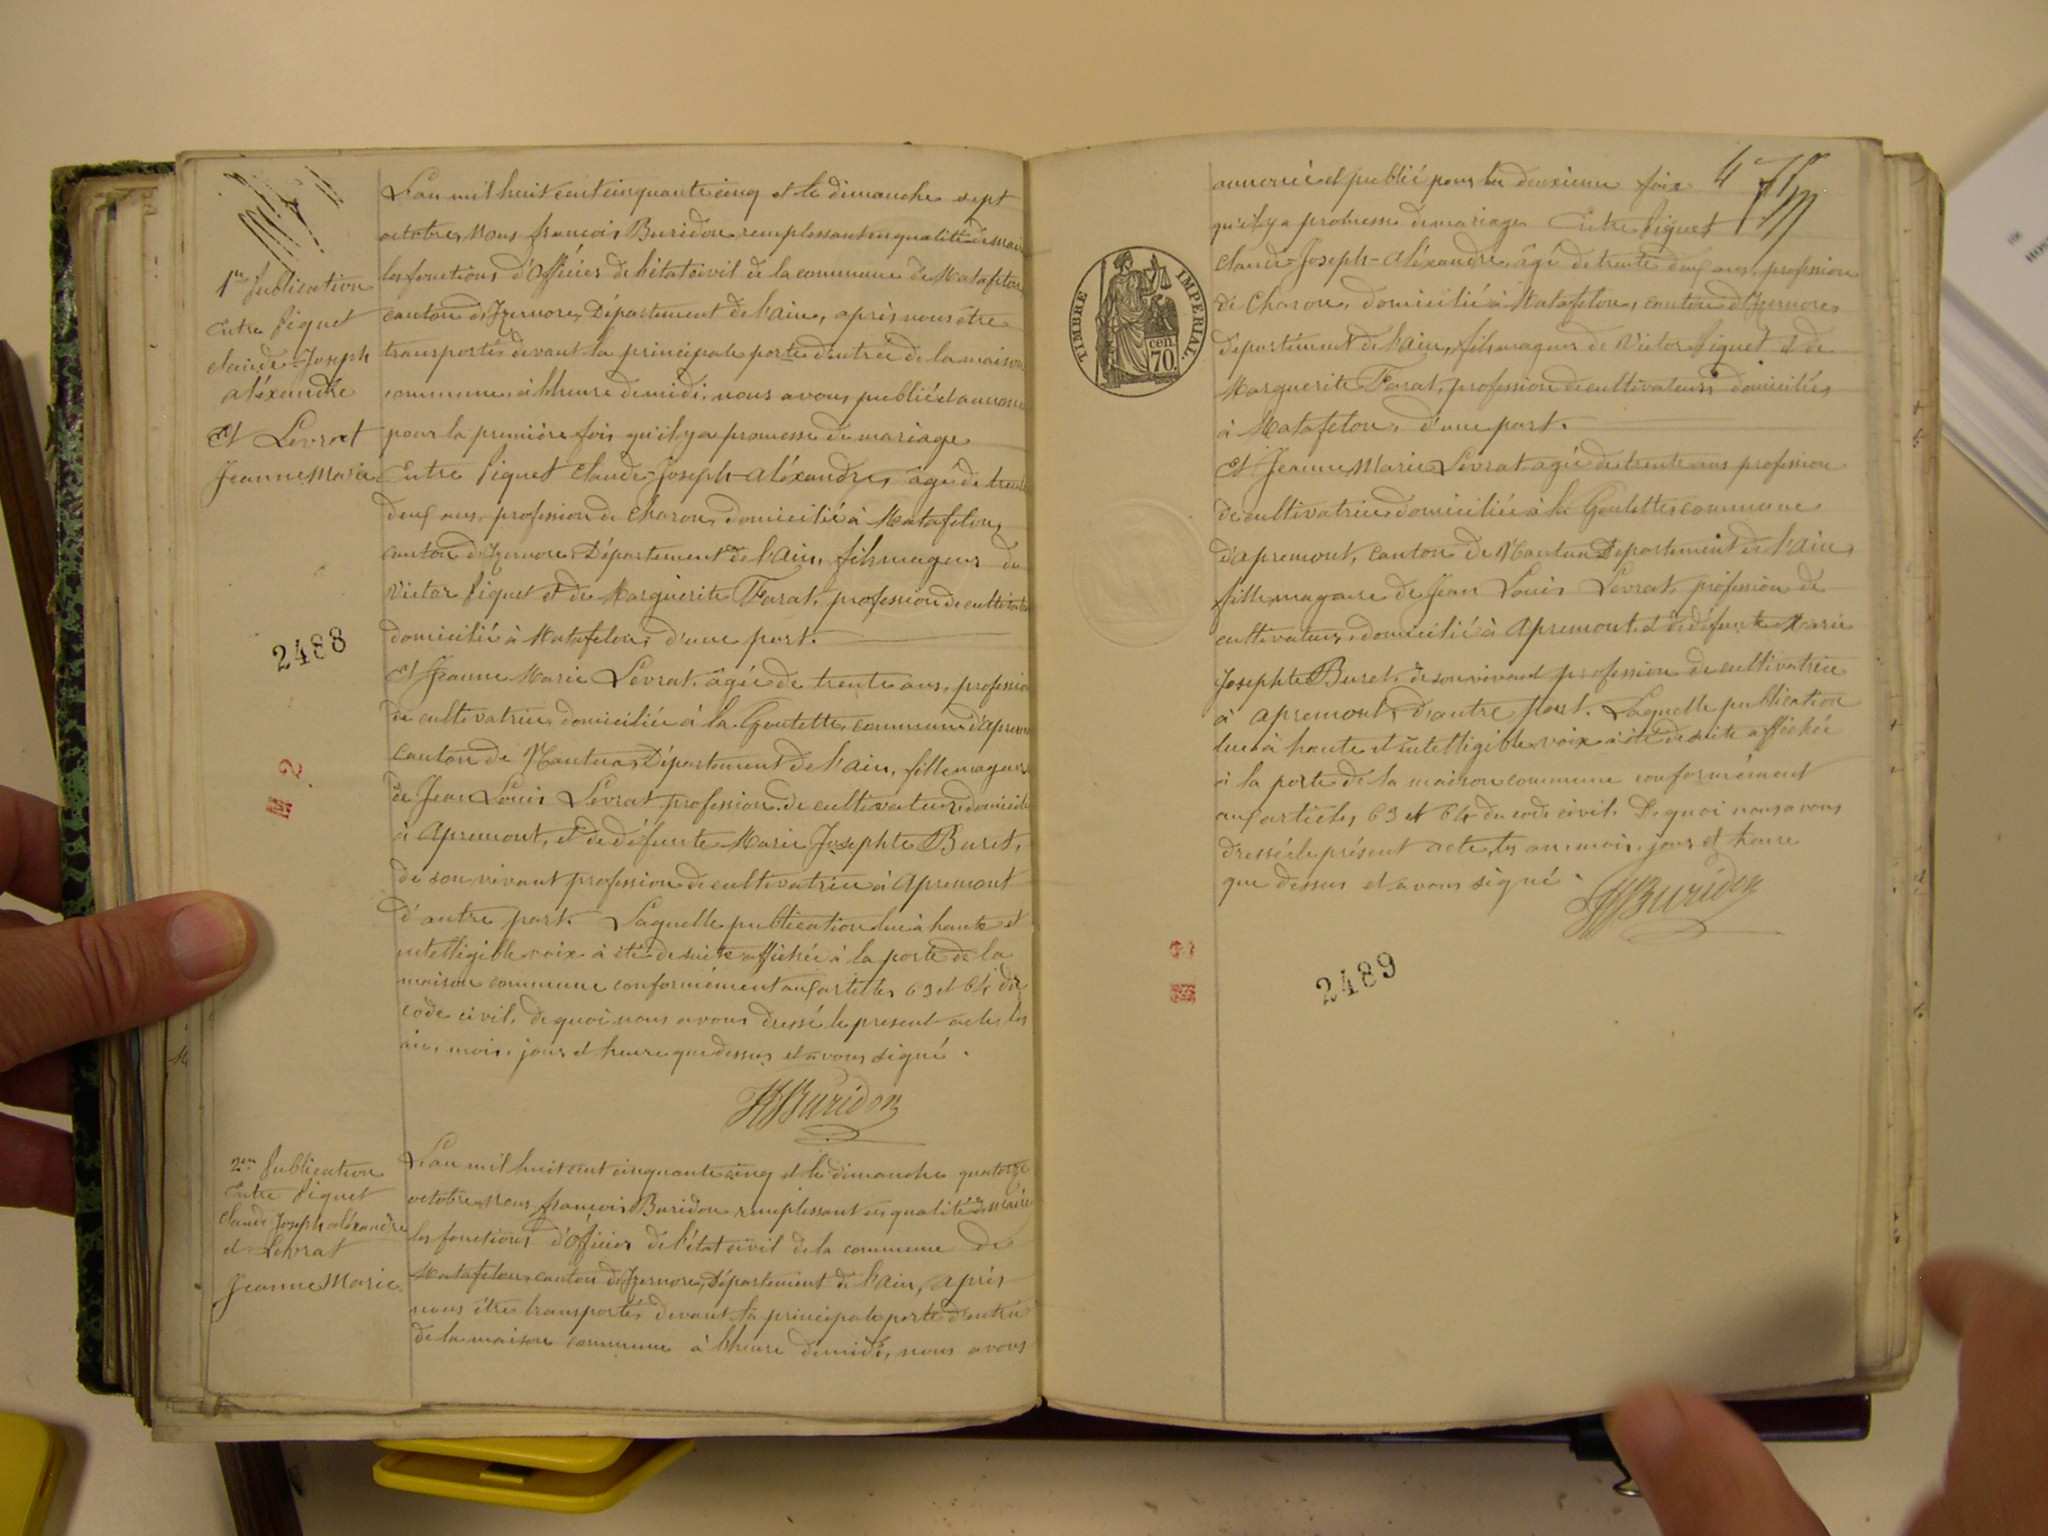 L'an mil huit cent cinquante cinq et le dimanche sept
octobre, nous françois Buridon remplessant en qualité de Maire
les fonctions d'Officier de l'état civil de la commune de Matafelon
canton d'Izernore, Département de l'ain, après nous être
transportés devant la principale porte d'entrée de la maison
commune, à l'heure de midi, nous avons publié et annoncé
pour la première fois qu'il y a promesse de mariage
Entre Piquet Claude-Joseph-aléxandre, âgé de trente
deux ans, profession de Charon, domicilié à Matafelon,
canton d'Izernore, Département de l'ain, fils mageur de
Victor Piquet et de Marguerite Farat, profession de cultivateurs
domicilié à Matafelon, d'une part.
Et Jeanne Marie Levrat, agée de trente ans, profession
de cultivatrice, domiciliée à la Goutette, commune d'apremont
canton de Nantua, Département de l'ain, fille mageure
de Jean Louis Levrat, profession de cultivateur, domicilié
à Apremont, et de défunte Marie Josephte Buret,
de son vivant profession de cultivatrice à Apremont
d'autre part. Laquelle publication lue à haute et
intelligible voix à été de suite affichée à la porte de la
maison commune conformément aux artictes 63 et 64 du
code civil, de quoi nous avons dressé le present acte, les
an, mois, jour et heure que dessus et avons signé.
Buridon
1re Publication
Entre Piquet
claude-Joseph
aléxandre
Et Levrat
Jeanne Marie
2488
2
2me Publication
Entre Piquet
Claude Joseph aléxandre
et Levrat
Jeanne Marie
L'an mil huit cent cinquante cinq et le dimanche quatorze
octobre, nous françois Buridon remplessant en qualité de maire
les fonctions d'Officier de l'état civil de la commune de
Matafelon, canton d'Izernore, Département de l'ain, après
nous être transportés devant la principale porte d'entrée
de la maison commune à l'heure de midi, nous avons
4
annoncé et publié pour la deuxieme fois
qu'il y a promesse de mariage Entre Piquet
Claude-Joseph-aléxandre, âgé de trente deux ans, profession
de Charon, domicilié à Matafelon, canton d'Izernore,
Département de l'ain, fils mageur de Victor Piquet et de
Marguerite Farat, profession de cultivateurs domiciliés
à Matafelon, d'une part.
Et Jeanne Marie Levrat agée de trente ans profession
de cultivatrice domiciliée à la Goutette, commune
d'apremont, canton de Nantua Département de l'ain,
fille mageure de Jean Louis Levrat, profession de
cultivateur, domicilié à Apremont et de défunte Marie
Josephte Buret, de son vivant profession de cultivatrice
à apremont, d'autre part. Laquelle publication
lue à haute et intelligible voix à été de suite affichée
à la porte de la maison commune conformément
aux artictes 63 et 64 du code civil. De quoi nous avons
dressé le présent acte, les an, mois, jour et heure
que dessus et avons signé.
Buridon
TIMBRE IMPERIAL.
cen.
70.
2489